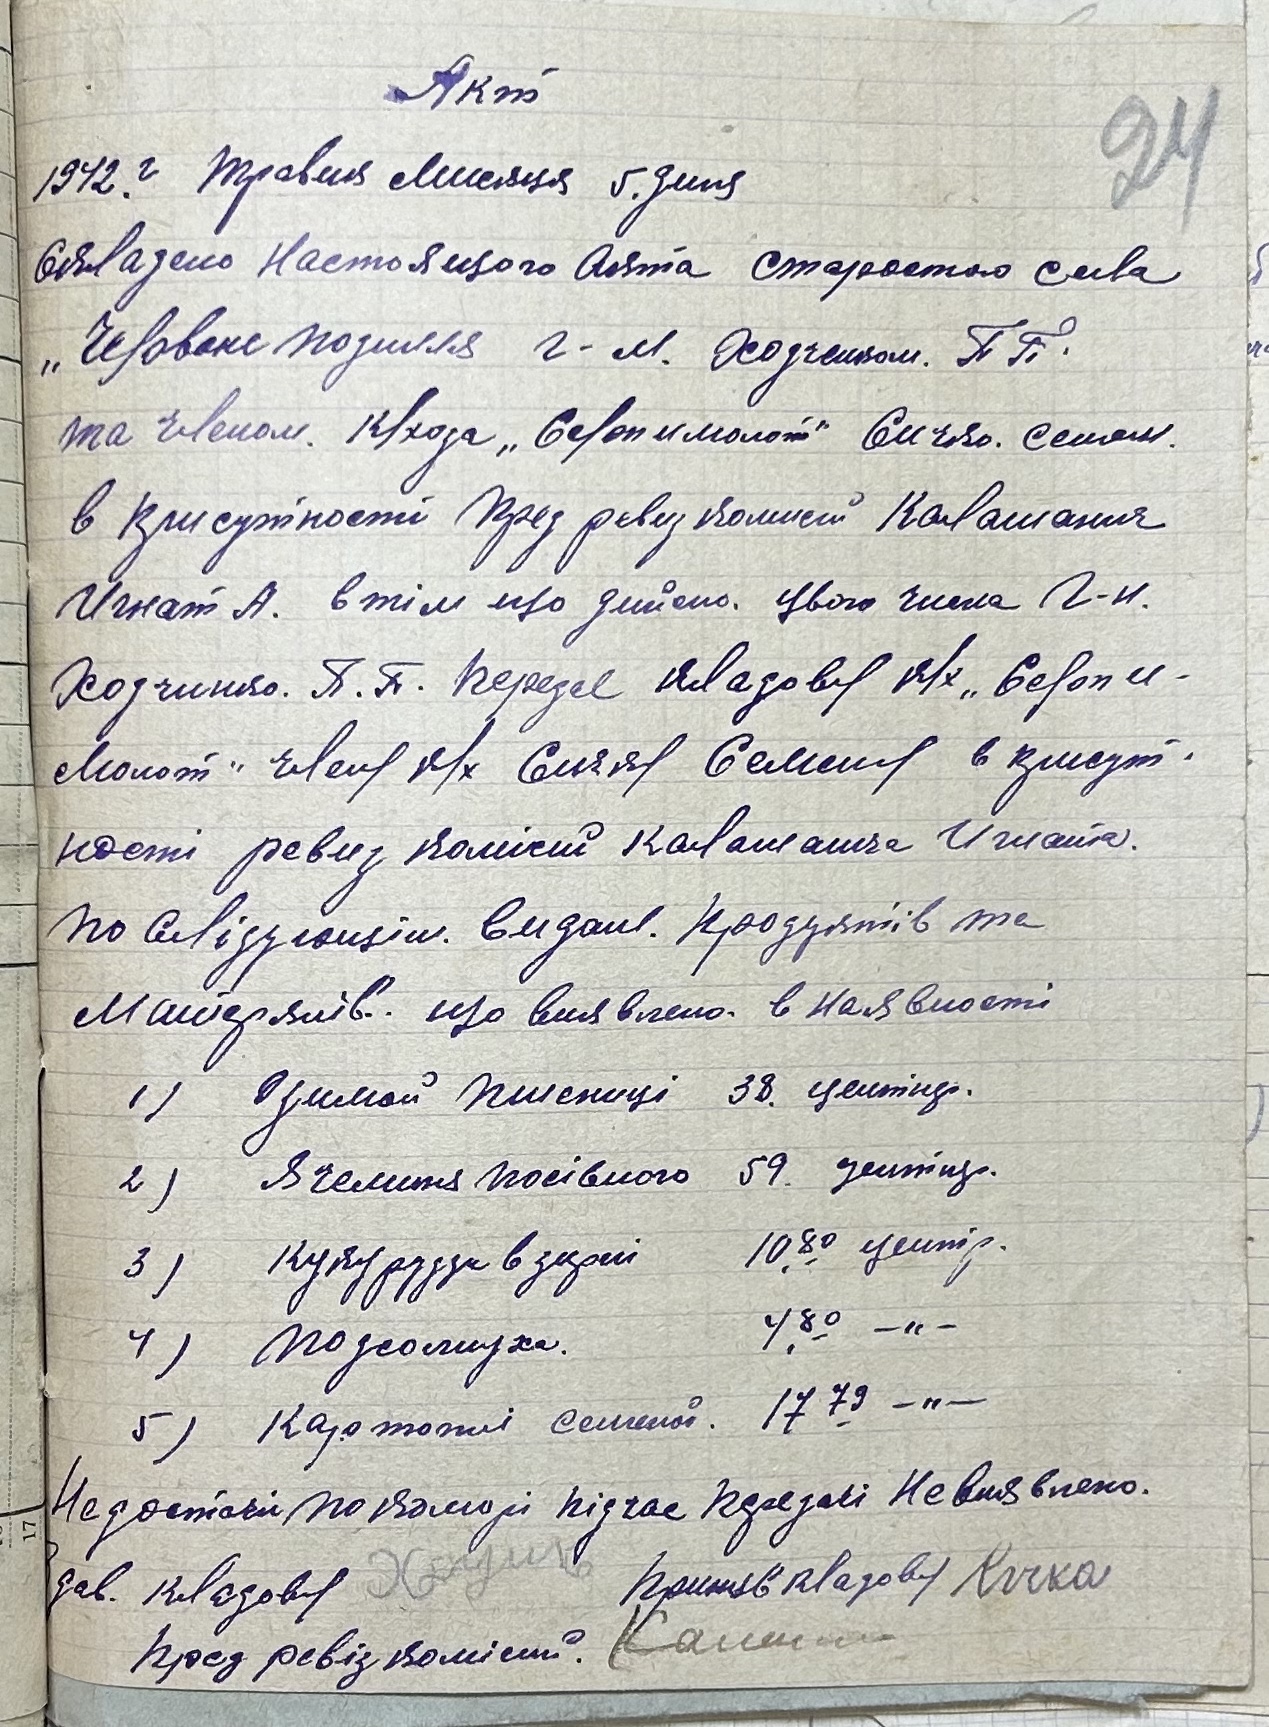 Акт
24
1942 г. Травня Мисяця 5. Дння
Складено Настоящого Акта старостою села
„Червоне Поділля г-м. Ходченком. П. П.
та членом. К/хоза „Серп и молот"
в присутності пред ревиз комисий Калашника
Игнат А. в тім що дийсно. цього числа Г-н.
Ходченко. П. П. передає кладову к/х „Серп и-
молот" члену к/х Семену в присут-
ності ревиз комісий Калашника Игната.
по слідующім. видам. продуктів та
Матерялів. що виявлено. в наявності
1) Озимой пшениці 38. центнер.
2) Ячминя посівного 59. центнер.
3) Кукурудзи в зерні 10,80 центр.
4) Подсолнуха. 4,80 —"—
5) Картошкі семеной. 17,79 —"—
Недостачи по коморі підчас передачі Невиявлено.
Здав. кладову Приняв кладову
Пред ревіз комісий.